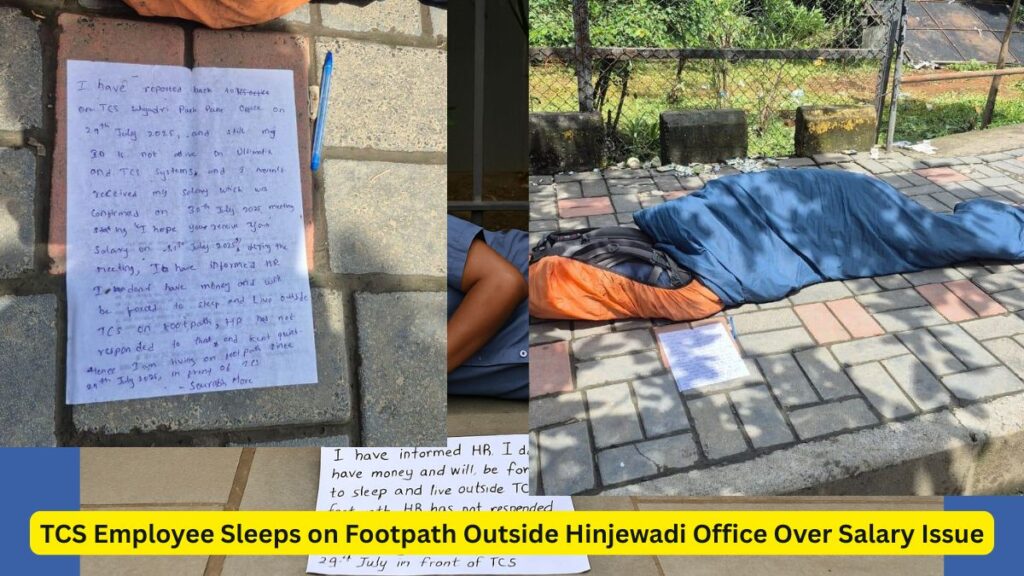 I have reported back to office
on TCS Sahyadri Park Pune Office on
29th July 2025, and still my
ID is not active on Ultimatix
and TCS Systems, and I haven't
received my Salary which was
confirmed on 30th July 2025 meeting
saying "I hope you receive your
Salary on 31st July 2025", during the
meeting, I have informed HR
I don't have money and will
be forced to sleep and live outside
TCS on Footpath, HR has not
responded to that, and kept quiet.
Hence I am living on foot path since
29th July 2025, in front of TCS
- Saurabh More
I have informed HR. I d
have money and will, be for
to sleep and live outside TC
HR has not responded
29th July in front of TCS
TCS Employee Sleeps on Footpath Outside Hinjewadi Office Over Salary Issue